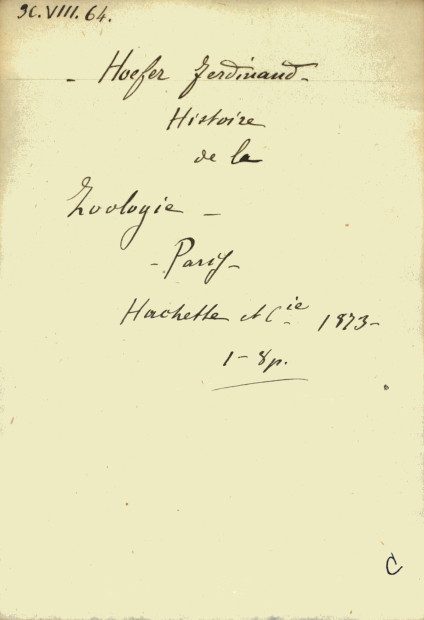 9C.VIII.64.
- Hoefer Ferdinand -
Histoire
de la
Zoologie -
- Paris -
Hachette et Cie 1873 -
1 - 8p.
C